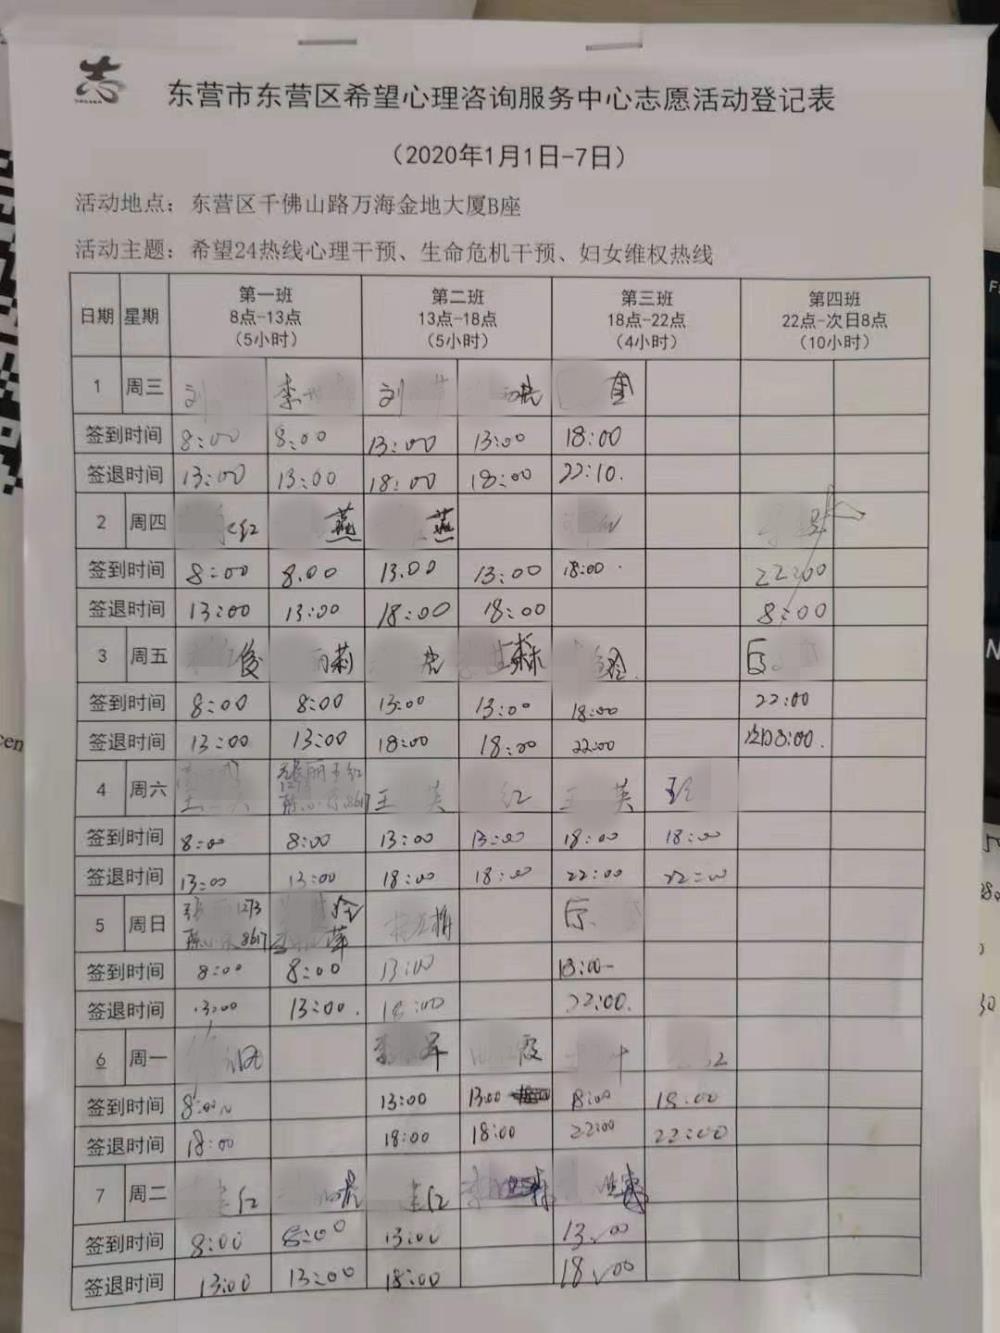 志
东营市东营区希望心理咨询服务中心志愿活动登记表
（2020年1月1日-7日）
活动地点：东营区千佛山路万海金地大厦B座
活动主题：希望24热线心理干预、生命危机干预、妇女维权热线
日期 星期 第一班 8点-13点 （5小时） 第二班 13点-18点 （5小时） 第三班 18点-22点 （4小时） 第四班 22点-次日8点 （10小时）
1 周三 刘 李 刘 虎
签到时间 8:00 8:00 13:00 13:00 18:00
签退时间 13:00 13:00 18:00 18:00 22:10.
2 周四 红 燕 燕
签到时间 8:00 8.00 13.00 13:00 18:00 22:00
签退时间 13:00 13:00 18:00 18:00 8:00
3 周五 俊 莉 虎 森 玲
签到时间 8:00 8:00 13:00 13:00 18:00 22:00
签退时间 13:00 13:00 18:00 18:00 22:00 次日8:00.
4 周六 丽 红 8617 王 英 红 王 英
签到时间 8:00 8:00 13:00 13:00 18:00 18:00
签退时间 13:00 13:00 18:00 18:00 22:00 22:00
5 周日 张 1273 8617 玲 萍 梅
签到时间 8:00 8:00 13:00 18:00
签退时间 13:00 13:00. 18:00 22:00.
6 周一 李 军 霞
签到时间 8:00 13:00 13:00 18:00 18:00
签退时间 18:00 18:00 18:00 22:00 22:00
7 周二 红 虎 红 李
签到时间 8:00 8:00 13:00 13:00
签退时间 13:00 13:00 18:00 18:00